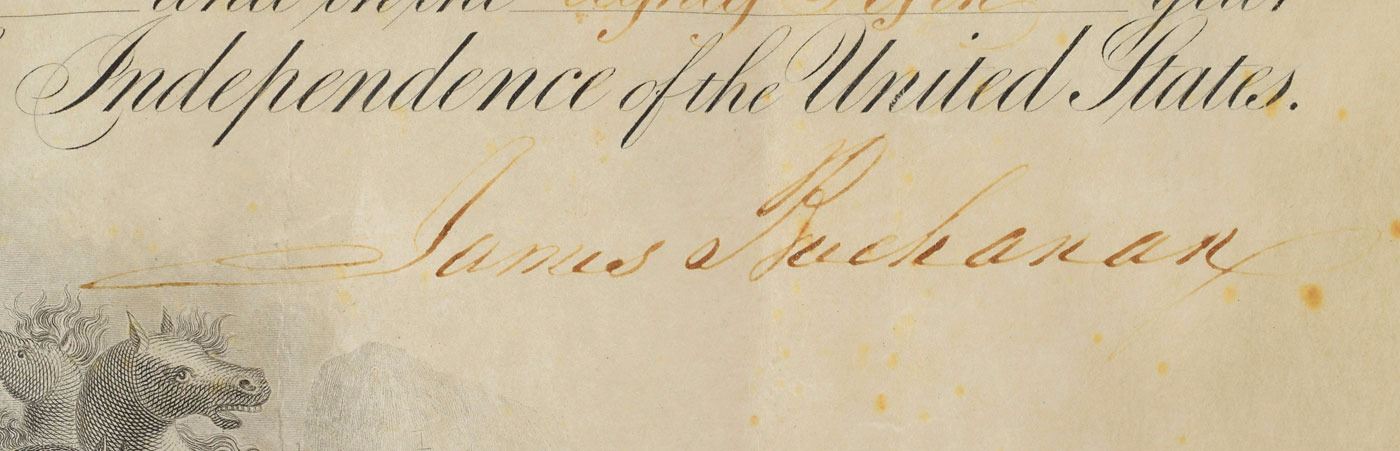 and in the
year
Independence of the United States.
James Buchanan